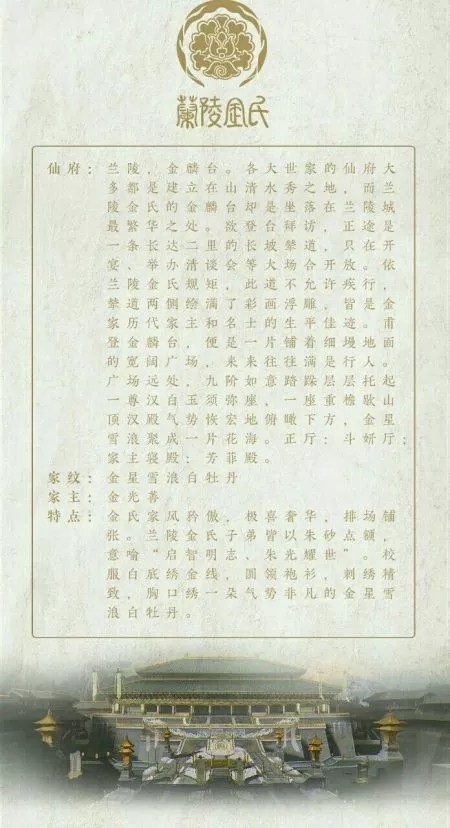 蘭陵金氏
仙府：兰陵，金麟台。各大世家的仙府大
多都是建立在山清水秀之地，而兰
陵金氏的金麟台却是坐落在兰陵城
最繁华之处。欲登台拜访，正途是
一条长达二里的长坡辇道，只在开
宴、举办清谈会等大场合开放。依
兰陵金氏规矩，此道不允许疾行，
辇道两侧绘满了彩画浮雕，皆是金
家历代家主和名士的生平佳迹。甫
登金麟台，便是一片铺着细墁地面
的宽阔广场，来来往往满是行人。
广场远处，九阶如意踏跺层层托起
一尊汉白玉须弥座，一座重檐歇山
顶汉殿气势恢宏地俯瞰下方，金星
雪浪聚成一片花海。正厅：斗妍厅；
家主寝殿：芳菲殿。
家纹：金星雪浪白牡丹
家主：金光善
特点：金氏家风矜傲，极喜奢华，排场铺
张。兰陵金氏子弟皆以朱砂点额，
意喻“启智明志、朱光耀世”。校
服白底绣金线，圆领袍衫，刺绣精
致，胸口绣一朵气势非凡的金星雪
浪白牡丹。